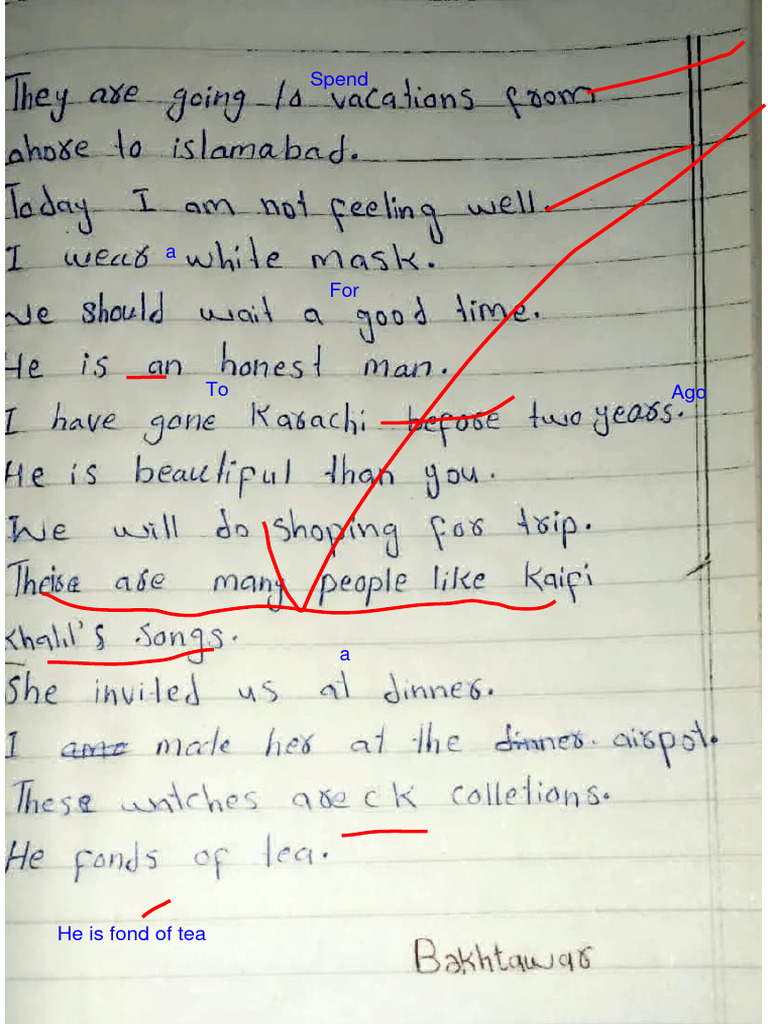 Spend
They are going to vacations from
ahore to islamabad.
Today I am not feeling well.
a
I wear white mask.
For
We should wait a good time.
He is an honest man.
To Ago
I have gone Karachi before two years.
He is beautiful than you.
We will do shoping for trip.
are many people like Kaifi
Khalil's songs.
a
She invited us at dinner.
I made her at the dinner. airpot.
These watches are ck colletions.
He fonds of tea.
He is fond of tea
Bakhtawar